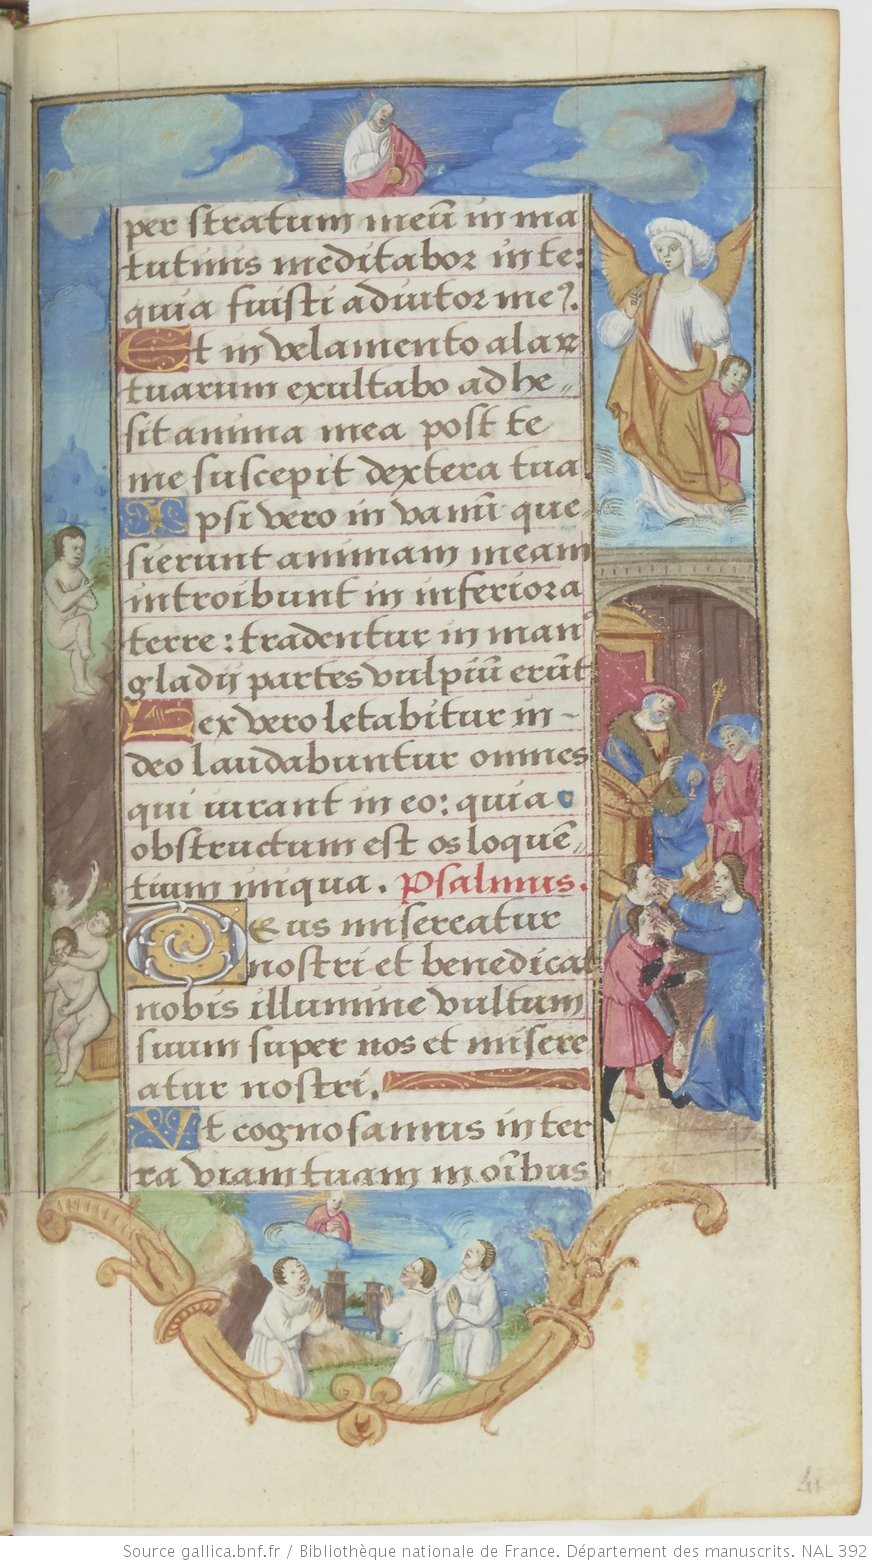 per stratum meū in ma
tutinis meditabor in te:
quia fuisti adiutor me9.
Et in velamento alar
tuarum exultabo adhe„
sit anima mea post te
me suscepit dextera tua
Ipsi vero in vanū que
sierunt animam meam
introibunt in inferiora
terre: tradentur in man9
gladij partes vulpiū erūt
Rex vero letabitur in-
deo laudabuntur omnes
qui iurant in eo: quia
obstructum est os loquē„
tium iniqua. Psalmus.
Deus misereatur
nostri et benedicat
nobis illumine vultum
suum super nos et misere
atur nostri.
Ut cognosamus in ter
ra viam tuam in oībus
Source gallica.bnf.fr / Bibliothèque nationale de France. Département des manuscrits. NAL 392